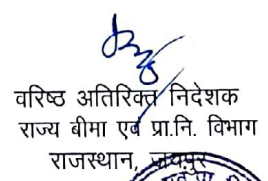 वरिष्ठ अतिरिक्त निदेशक
राज्य बीमा एवं प्रा.नि. विभाग
राजस्थान, जयपुर